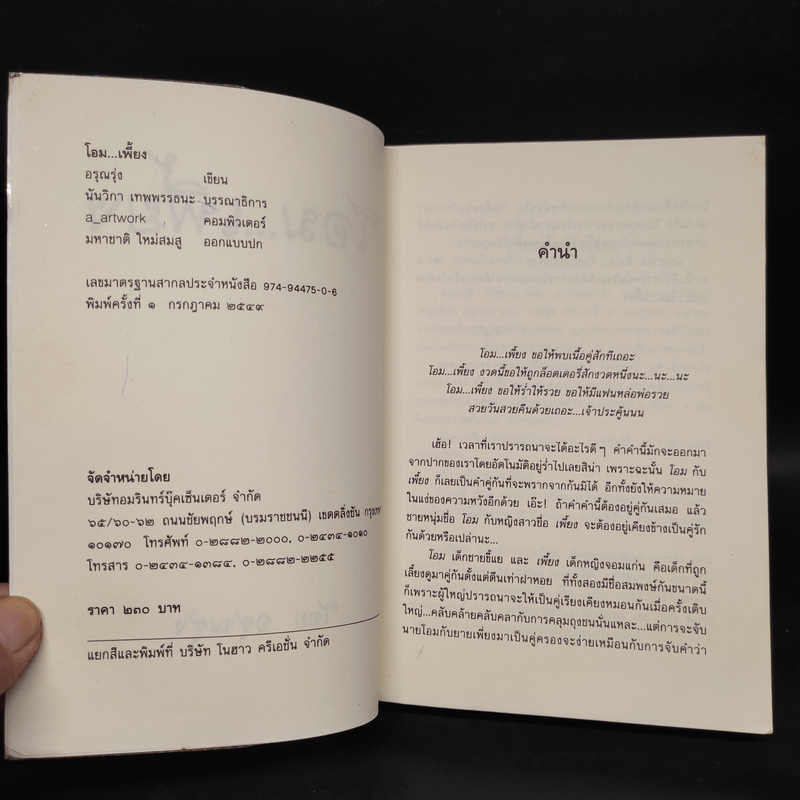 โอม...เพี้ยง
อรุณรุ่ง เขียน
นันวิกา เทพพรรธนะ บรรณาธิการ
a_artwork คอมพิวเตอร์
มหาชาติ ใหม่สมสู ออกแบบปก
เลขมาตรฐานสากลประจำหนังสือ 974-94475-0-6
พิมพ์ครั้งที่ ๑ กรกฎาคม ๒๕๔๙
จัดจำหน่ายโดย
บริษัทอมรินทร์บุ๊คเซ็นเตอร์ จำกัด
๖๕/๖๐-๖๒ ถนนชัยพฤกษ์ (บรมราชชนนี) เขตตลิ่งชัน กรุงเทพฯ
๑๐๑๗๐ โทรศัพท์ ๐-๒๘๘๒-๒๐๐๐, ๐-๒๔๓๔-๑๐๑๐
โทรสาร ๐-๒๔๓๔-๑๓๘๔, ๐-๒๘๘๒-๒๒๕๕
ราคา ๒๓๐ บาท
แยกสีและพิมพ์ที่ บริษัท โนฮาว ครีเอชั่น จำกัด
คำนำ
โอม...เพี้ยง ขอให้พบเนื้อคู่สักทีเถอะ
โอม...เพี้ยง งวดนี้ขอให้ถูกล็อตเตอรี่สักงวดหนึ่งนะ...นะ...นะ
โอม...เพี้ยง ขอให้ร่ำให้รวย ขอให้มีแฟนหล่อพ่อรวย
สวยวันสวยคืนด้วยเถอะ...เจ้าประคู้นนน
เฮ้อ! เวลาที่เราปรารถนาจะได้อะไรดีๆ คำคำนี้มักจะออกมา
จากปากของเราโดยอัตโนมัติอยู่ร่ำไปเลยสิน่า เพราะฉะนั้น โอม กับ
เพี้ยง ก็เลยเป็นคำคู่กันที่จะพรากจากกันมิได้ อีกทั้งยังให้ความหมาย
ในแง่ของความหวังอีกด้วย เอ๊ะ! ถ้าคำคำนี้ต้องอยู่คู่กันเสมอ แล้ว
ชายหนุ่มชื่อ โอม กับหญิงสาวชื่อ เพี้ยง จะต้องอยู่เคียงข้างเป็นคู่รัก
กันด้วยหรือเปล่านะ...
โอม เด็กชายขี้แย และ เพี้ยง เด็กหญิงจอมแก่น คือเด็กที่ถูก
เลี้ยงดูมาคู่กันตั้งแต่ตีนเท่าฝาหอย ที่ทั้งสองมีชื่อสมพงษ์กันขนาดนี้
ก็เพราะผู้ใหญ่ปรารถนาจะให้เป็นคู่เรียงเคียงหมอนกันเมื่อครั้งเติบ
ใหญ่...คลับคล้ายคลับคลากับการคลุมถุงชนนั่นแหละ...แต่การจะจับ
นายโอมกับยายเพี้ยงมาเป็นคู่ครองจะง่ายเหมือนกับการจับคำว่า